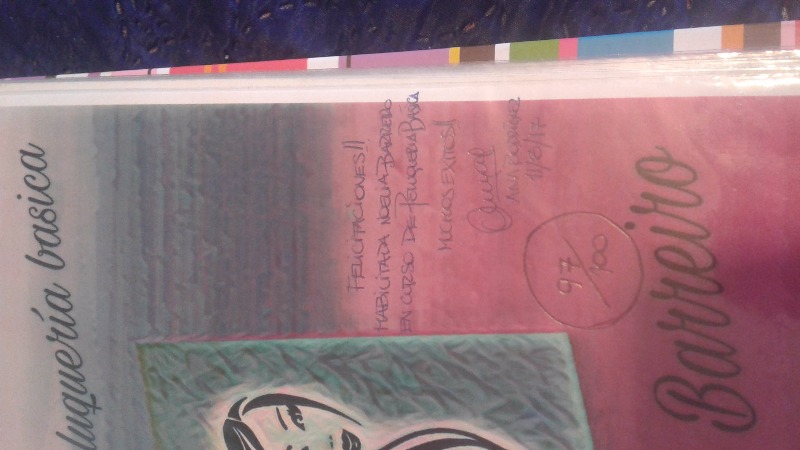 luquería basica
FELICITACIONES!!
HABILITADA NOELIA BARREIRO
EN CURSO DE PELUQUERIA BASICA
MUCHOS EXITOS!!
ANA RODRIGUEZ
97/100
Barreiro